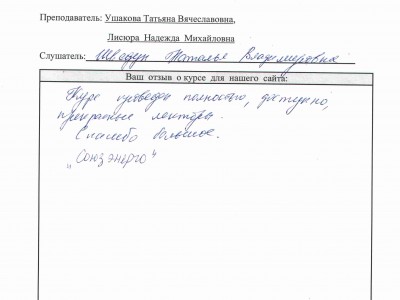 Преподаватель: Ушакова Татьяна Вячеславовна,
Лисюра Надежда Михайловна
Слушатель: Наталья Владимировна
Ваш отзыв о курсе для нашего сайта:
Курс проведен полностью, доступно,
прекрасные лекторы.
Спасибо большое.
"Союзэнерго"